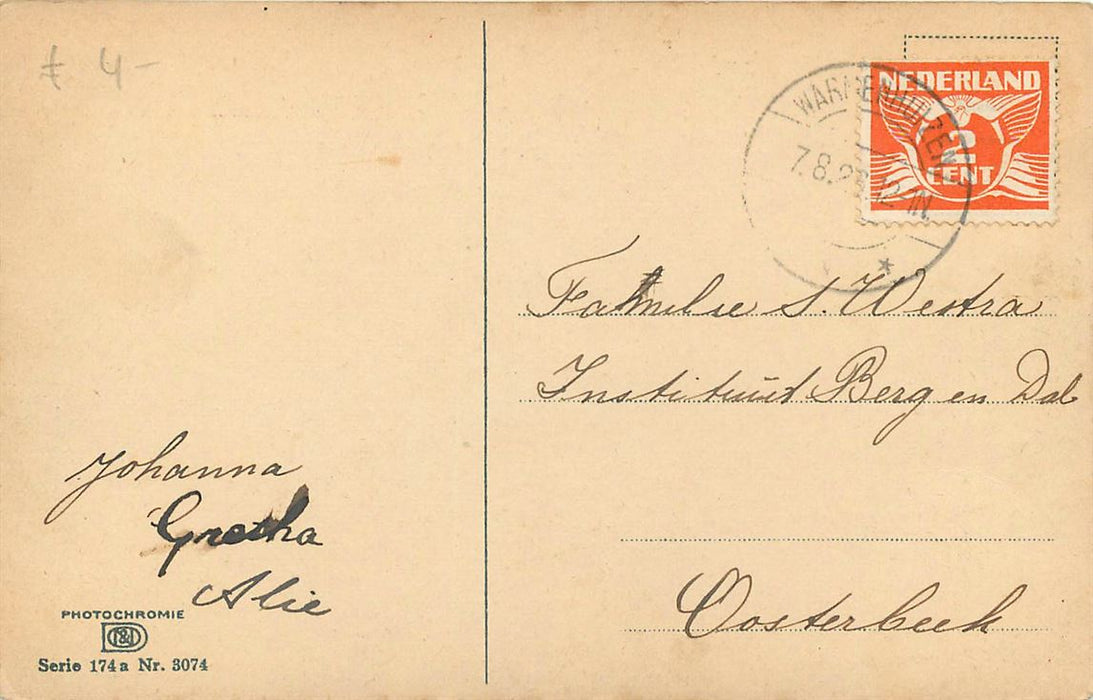 £ 4-
NEDERLAND
2
CENT
WARMENHUIZEN
7.8.2 12-1N.
Familie S. Westra
Instituut Berg en Dal
Johanna
Gretha
Alie
Oosterbeek
PHOTOCHROMIE
Serie 174a Nr. 3074